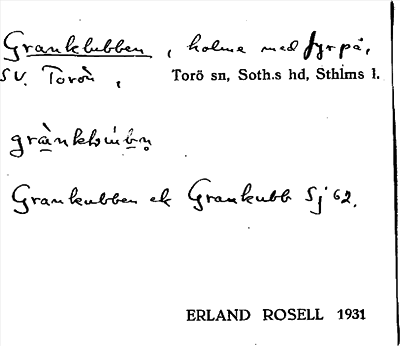 Granklubben, holme med fyr på,
SV. Torön, Torö sn, Soth.s hd, Sthlms l.
Grankubben ek Grankubb Sj 62.
ERLAND ROSELL 1931